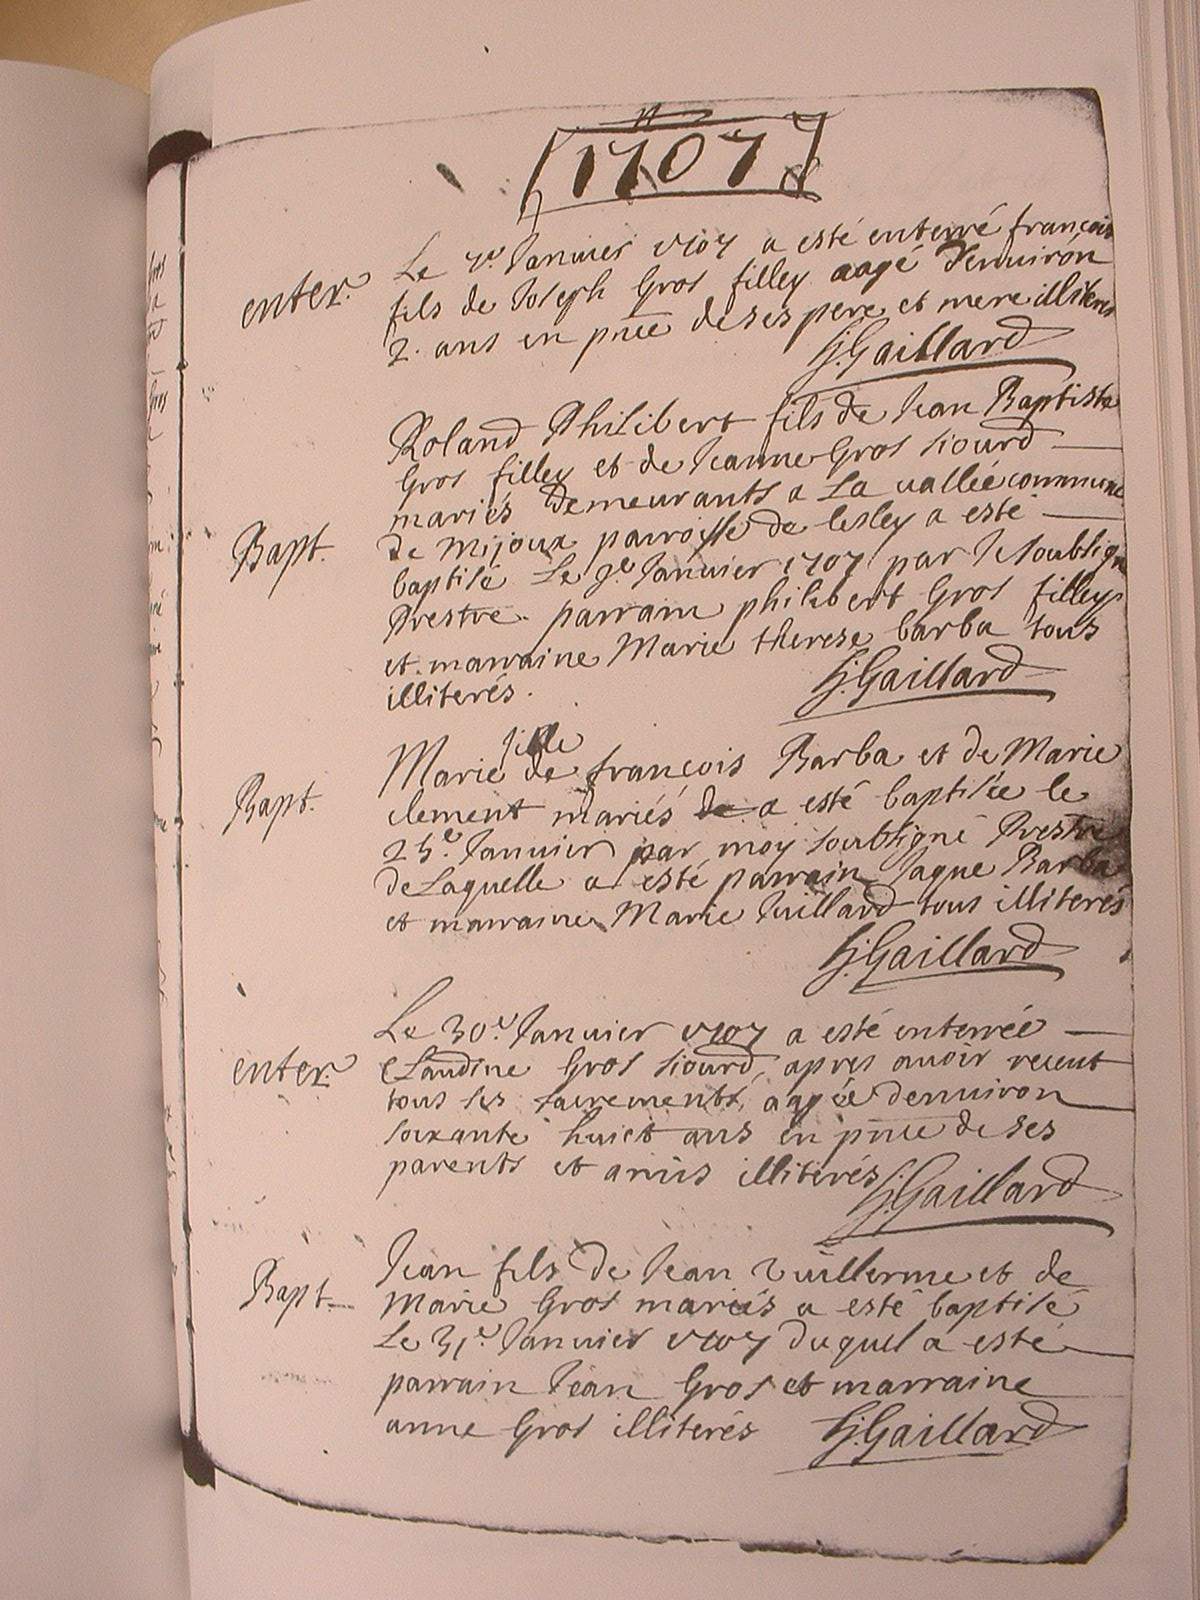 1707
enter.
Le 7e. Janvier 1707 a esté enterré françois
fils de Joseph Gros filley aagé d'enuiron
2. ans en pñce de ses pere et mere illiterés
G. Gaillard
Bapt.
Roland Philibert fils de Jean Baptiste
Gros filley et de Jeanne Gros Siourd
mariés demeurants a La vallée commune
de Mijoux parroisse de Lesley a esté
baptisé Le 9e. Janvier 1707 par Je soubsigné
Prestre. parrain philibert Gros filley
et marraine Marie therese barba tous
illiterés.
G. Gaillard
Bapt.
fille
Marie de françois Barba et de Marie
clement mariés de a esté baptisée le
25e. Janvier par moy soubsigné Prestre
de Laquelle a esté parrain Jaque Barba
et marraine Marie Juillard tous illiterés
G. Gaillard
enter.
Le 30e. Janvier 1707 a esté enterrée
Claudine Gros Siourd, apres auoir receut
tous les sacrements, aagée denuiron
soixante huict ans en pñce de ses
parents et amis illiterés
G. Gaillard
Bapt.
Jean fils de Jean Vuillerme et de
Marie Gros mariés a esté baptisé
Le 31e. Janvier 1707 duquel a esté
parrain Jean Gros et marraine
anne Gros illiterés
G. Gaillard